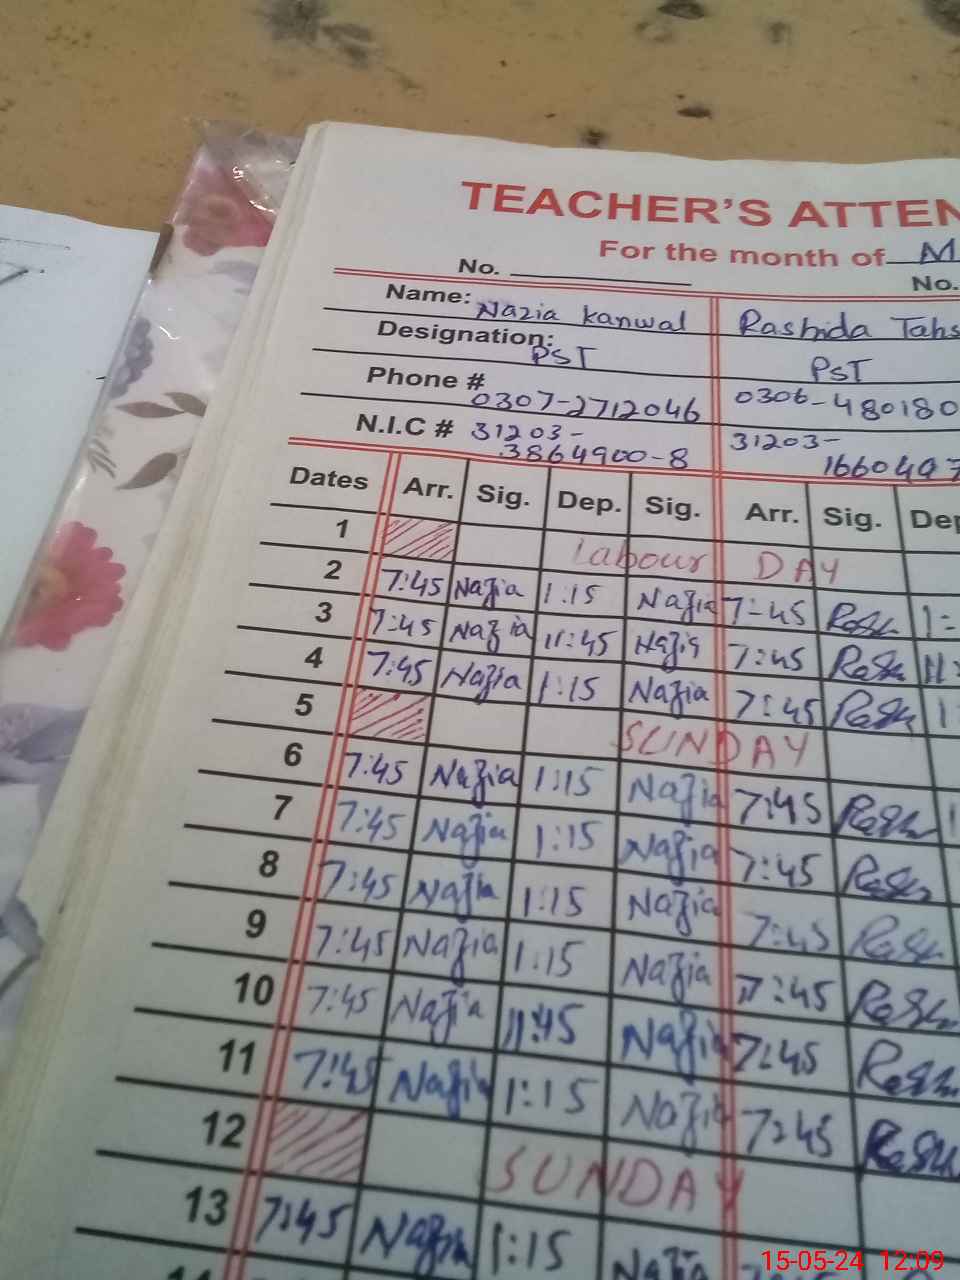 TEACHER'S ATTEN
For the month of M
No. No.
Name: Nazia Kanwal Rashida Tahs
Designation: PST PST
Phone # 0307-2712046 0306-480180
N.I.C # 31203- 31203-
3864900-8 1660497
Dates Arr. Sig. Dep. Sig. Arr. Sig. Dep
1 Labour DAY
2 7:45 Nazia 1:15 Nazia 7:45 Rash 1:
3 7:45 Nazia 11:45 Nazia 7:45 Rash 11:
4 7:45 Nazia 1:15 Nazia 7:45 Rash 1
5 SUNDAY
6 7:45 Nazia 1:15 Nazia 7:45 Rash 1
7 7:45 Nazia 1:15 Nazia 7:45 Rash
8 7:45 Nazia 1:15 Nazia 7:45 Rash
9 7:45 Nazia 1:15 Nazia 7:45 Rash
10 7:45 Nazia 11:45 Nazia 7:45 Rash
11 7:45 Nazia 1:15 Nazia 7:45 Rash
12 SUNDAY
13 7:45 Nazia 1:15 Nazia
15-05-24 12:09